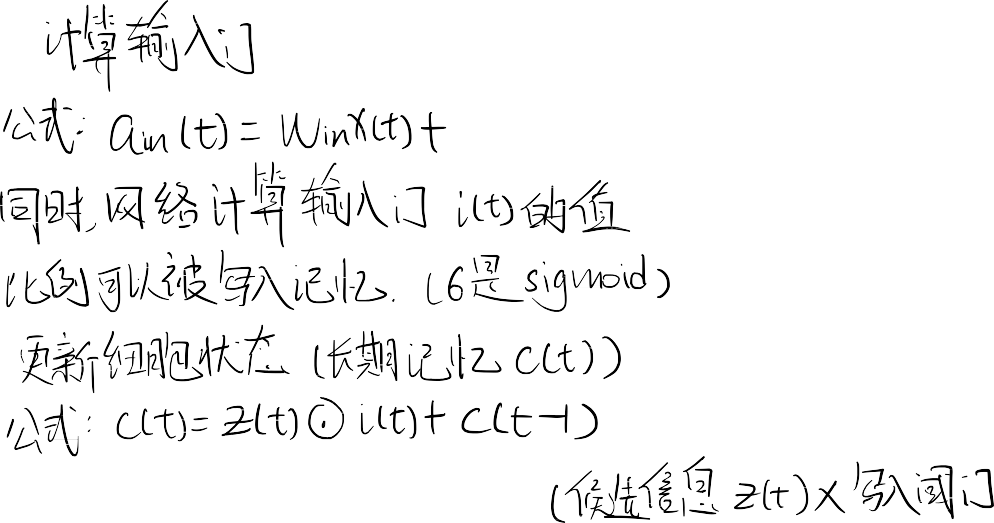 计算输入门
公式: ain(t) = Winx(t) +
同时,网络计算输入门 i(t)的值
比例可以被写入记忆. (6是 sigmoid)
更新细胞状态 (长期记忆 C(t))
公式: C(t) = z(t) ⊙ i(t) + C(t-1)
(候选信息 z(t) × 写入阀门